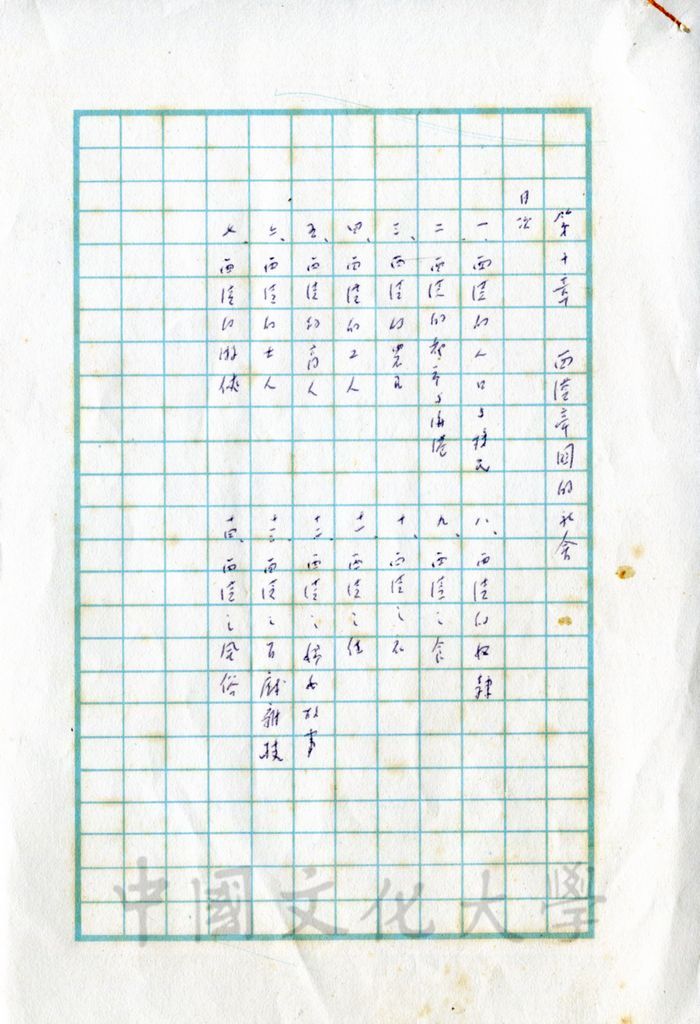 第十章 西漢帝國的社會
目次
一、西漢的人口与移民
二、西漢的都市与海港
三、西漢的農民
四、西漢的工人
五、西漢的商人
六、西漢的士人
七、西漢的游俠
八、西漢的奴隸
九、西漢之食
十、西漢之衣
十一、西漢之住
十二、西漢之婦女故事
十三、西漢之百戲雜技
十四、西漢之風俗
中國文化大學